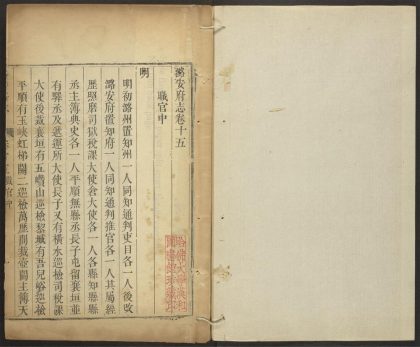 潞安府志卷十五
職官中
明
明初潞州置知州一人同知通判吏目各一人後改
潞安府置知府一人同知通判推官各一人其屬經
歷照磨司獄稅課大使倉大使各一人各縣知縣縣
丞主簿典史各一人平順無縣丞長子屯留襄垣並
有驛丞及遞運所大使長子又有橫水巡檢司稅課
大使後裁襄垣有五𡾋山巡檢黎城有吾兒峪巡檢
平順有玉峽虹梯關二巡檢萬歷間裁壺關主簿天
職官中